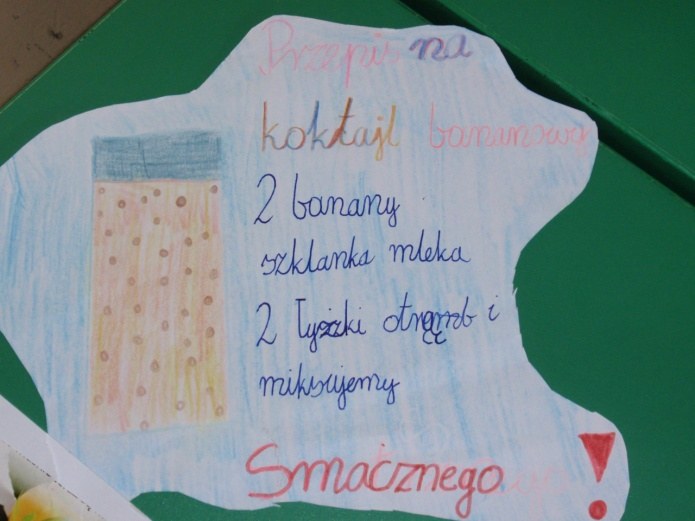 Przepis na
koktajl bananowy
2 banany
szklanka mleka
2 łyżki otrąb i
miksujemy
Smacznego!